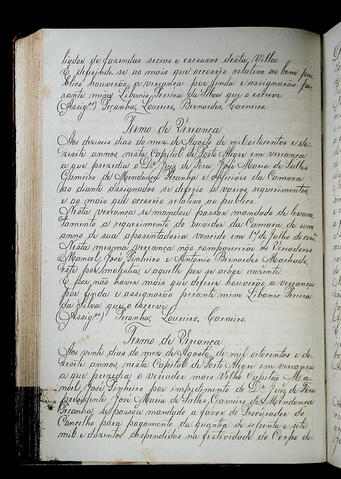 ligdor de fazendas seccas e escravos desta Villa
E deferindo-se ao mais que occorrêo relativo ao bem pu-
blico houverão a vereança por finda e assignarão pe-
rante mim Libanio Pereira da Silva que o escrevi
(Assig.os) Peçanha, Loureiro, Bernardes, Carneiro.
Termo de Vereança
Aos dezeseis dias do mez de Agosto de mil oitocentos e de-
zesete annos nesta Capital de Porto Alegre em vereança
a que prezedio o D.or Juiz de Fora José Maria de Salles
Gameiro de Mendonça Peçanha e officiaes da Camara
ao diante assignados se deferio a varios requerimentos
e ao mais que occorrêo relativo ao publico.
Nesta vereança se mandou passar mandado de levan-
tamento a requerimento de ouvidor da Camara de um
anno de sua aposentadoria vencida em 1.º de Julho de
Nesta mesma vereança não comparecerão os Vereadores
Manoel José Pinheiro e Antonio Bernardes Machado,
este por molestia e aquelle por se achar auzente.
E por não haver mais que deferir houverão a vereança
por finda e assignarão perante mim Libanio Pereira
da Silva que o escrevi
(Assig.os) Peçanha, Loureiro, Carneiro.
Termo de Vereança
Aos vinte dias do mez de Agosto de mil oitocentos e de-
zesete annos, nesta Capital de Porto Alegre em vereança
a que prezedio o vereador mais Velho Capitão Ma-
noel José Pinheiro por impedimento do D.or Juiz de Fora
prezidente José Maria de Salles Gameiro de Mendonça
Peçanha se passou mandado a favor do Procurador do
Concelho para pagamento da quantia de setenta e sete
mil e duzentos dispendidos na festividade do Corpo de